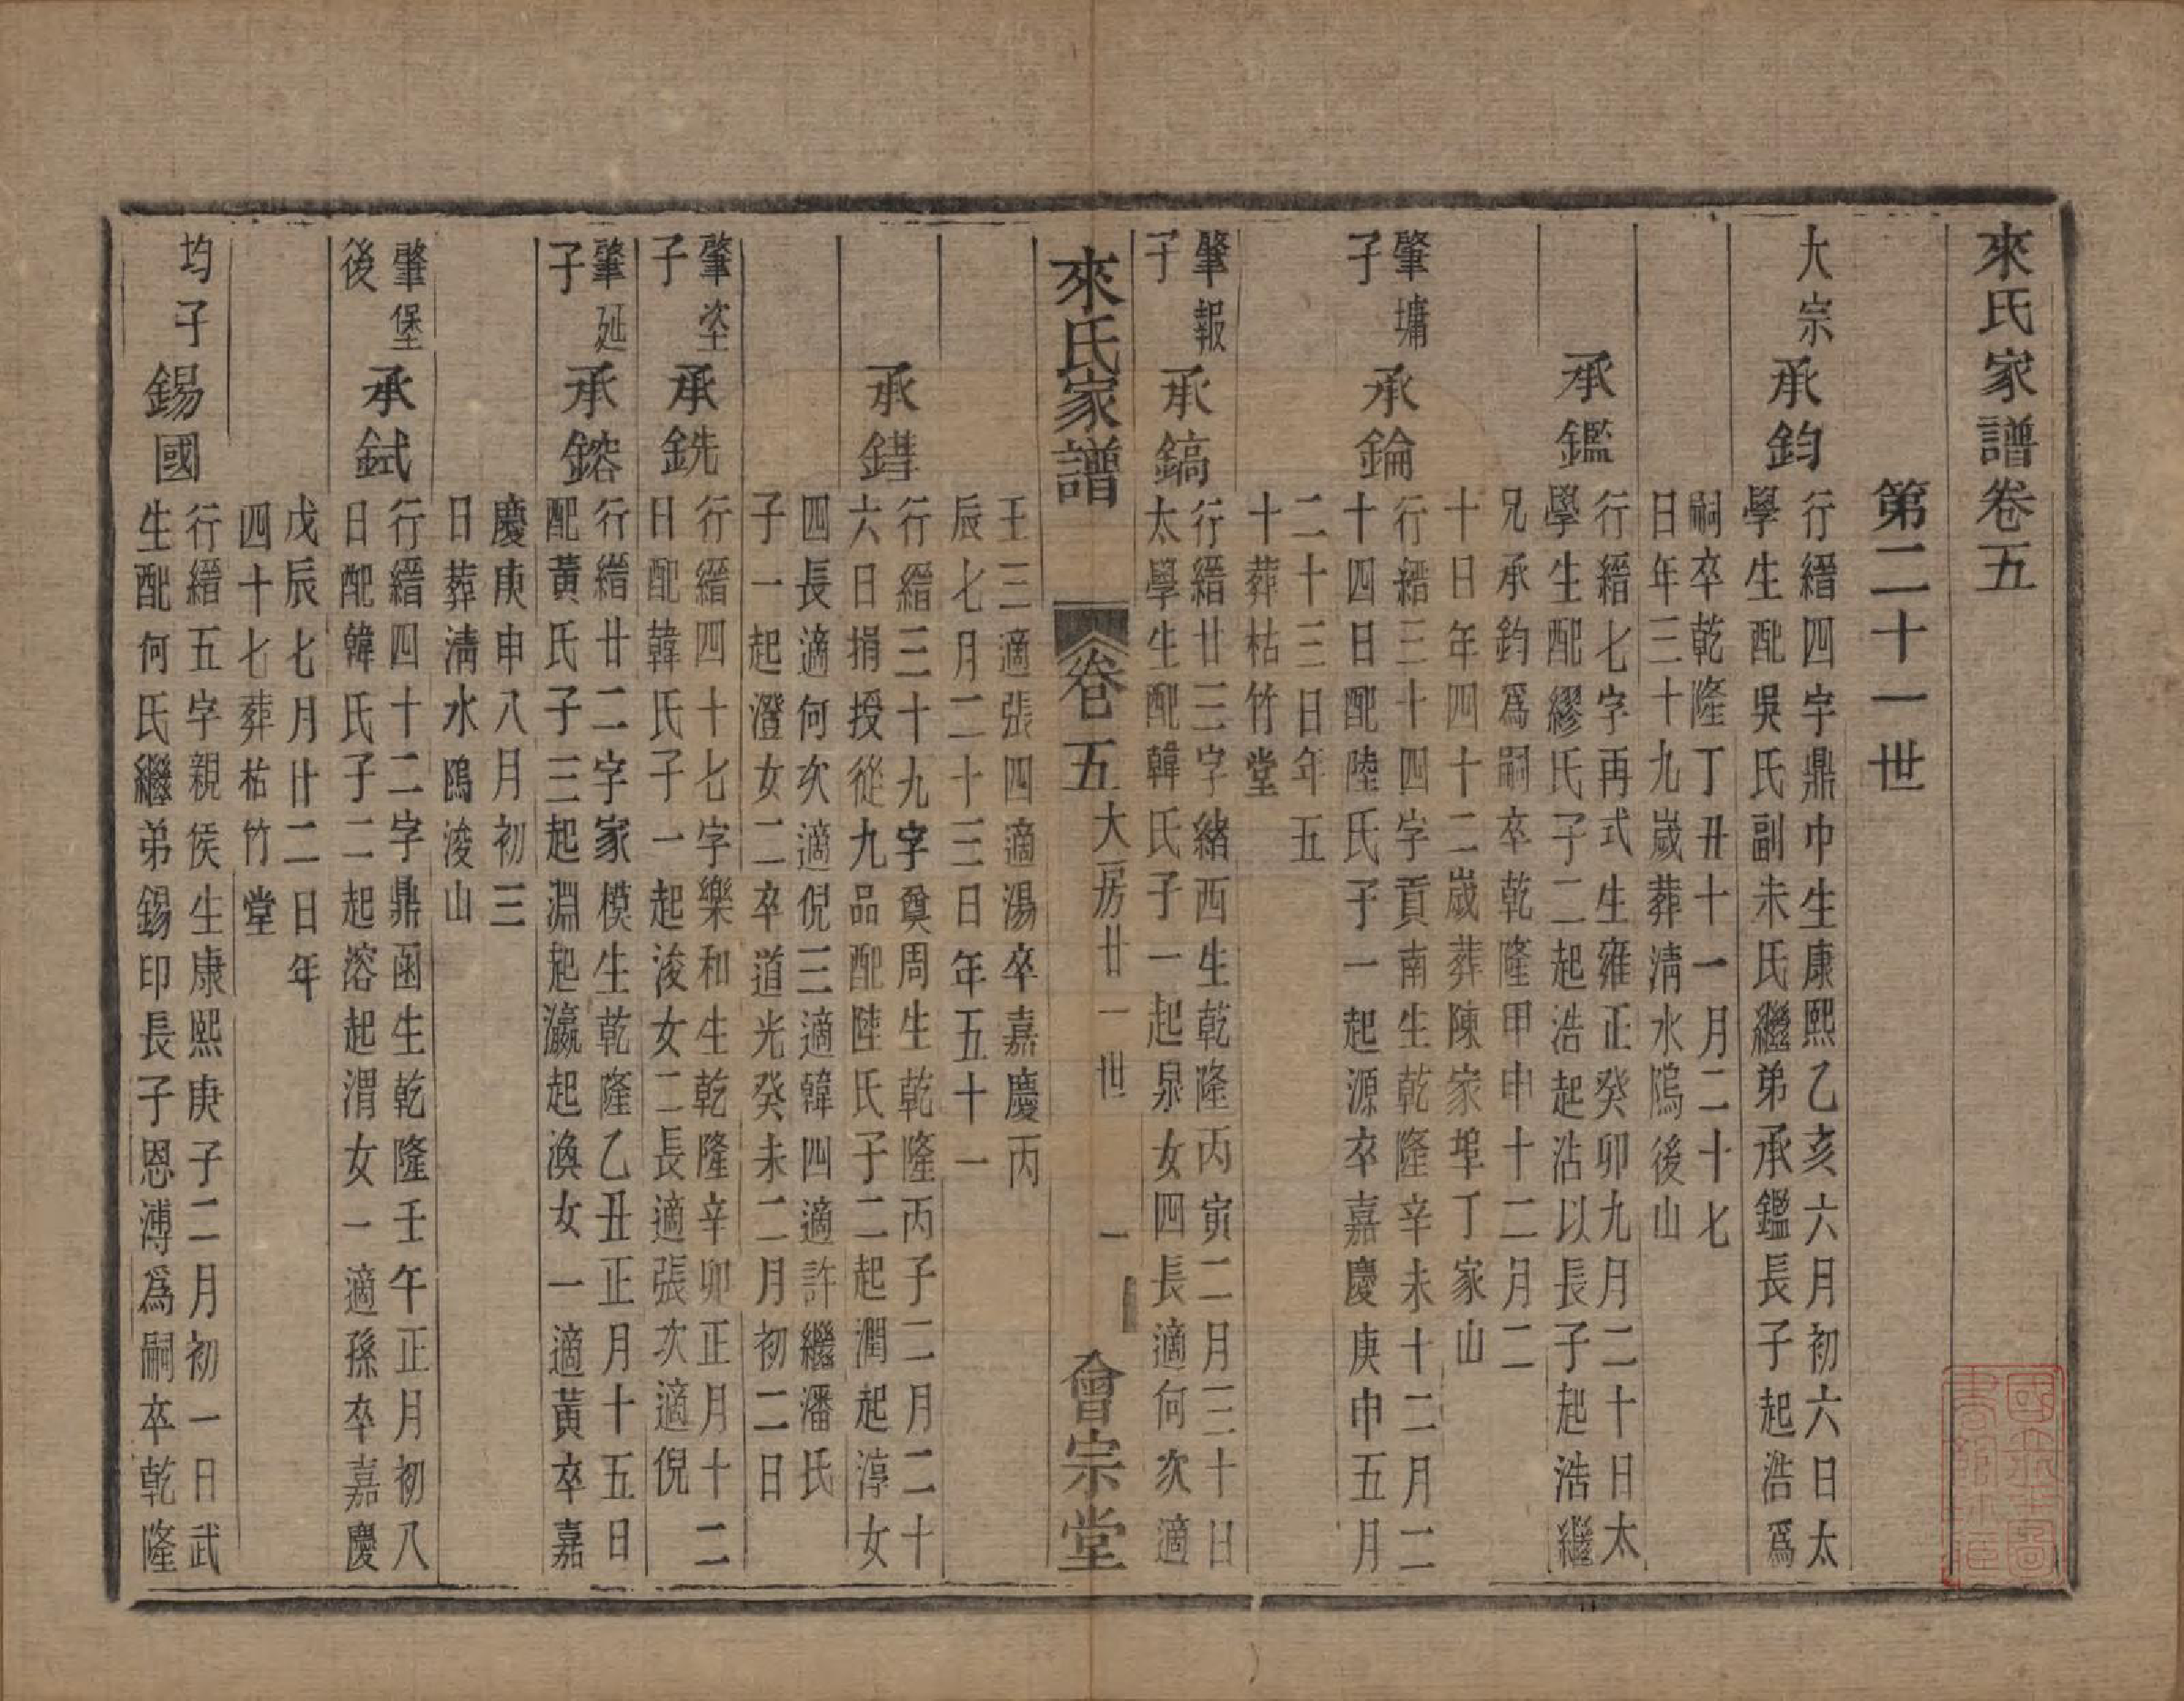 來氏家譜卷五
第二十一世
大宗
承鈞
行縉四字鼎巾生康熙乙亥六月初六日太
學生配吳氏副未氏繼弟承鑑長子起浩爲
嗣卒乾隆丁丑十一月二十七
日年三十九歲葬淸水隖後山
承鑑
行縉七字再式生雍正癸卯九月二十日太
學生配繆氏子二起浩起沾以長子起浩繼
兄承鈞爲嗣卒乾隆甲申十二月二
十日年四十二歲葬陳家埠丁家山
肇墉
子
承錀
行縉三十四字貢南生乾隆辛未十二月二
十四日配陸氏子一起源卒嘉慶庚申五月
二十三日年五
十葬枯竹堂
肇報
子
承鎬
行縉廿三字緒西生乾隆丙寅二月三十日
太學生配韓氏子一起泉女四長適何次適
來氏家譜 卷五 大房廿一世 一 會宗堂
王三適張四適湯卒嘉慶丙
辰七月二十三日年五十一
承錯
行縉三十九字奠周生乾隆丙子二月二十
六日捐授從九品配陸氏子二起潤起淳女
四長適何次適倪三適韓四適許繼潘氏
子一起澄女二卒道光癸未二月初二日
肇垐
子
承銑
行縉四十七字樂和生乾隆辛卯正月十二
日配韓氏子一起浚女二長適張次適倪
肇延
子
承鎔
行縉廿二字家模生乾隆乙丑正月十五日
配黃氏子三起淵起瀛起渙女一適黃卒嘉
慶庚申八月初三
日葬淸水隖浚山
肇堡
後
承鉽
行縉四十二字鼎函生乾隆壬午正月初八
日配韓氏子二起溶起渭女一適孫卒嘉慶
戊辰七月廿二日年
四十七葬枯竹堂
均子
錫國
行縉五字親侯生康熙庚子二月初一日武
生配何氏繼弟錫印長子恩溥爲嗣卒乾隆